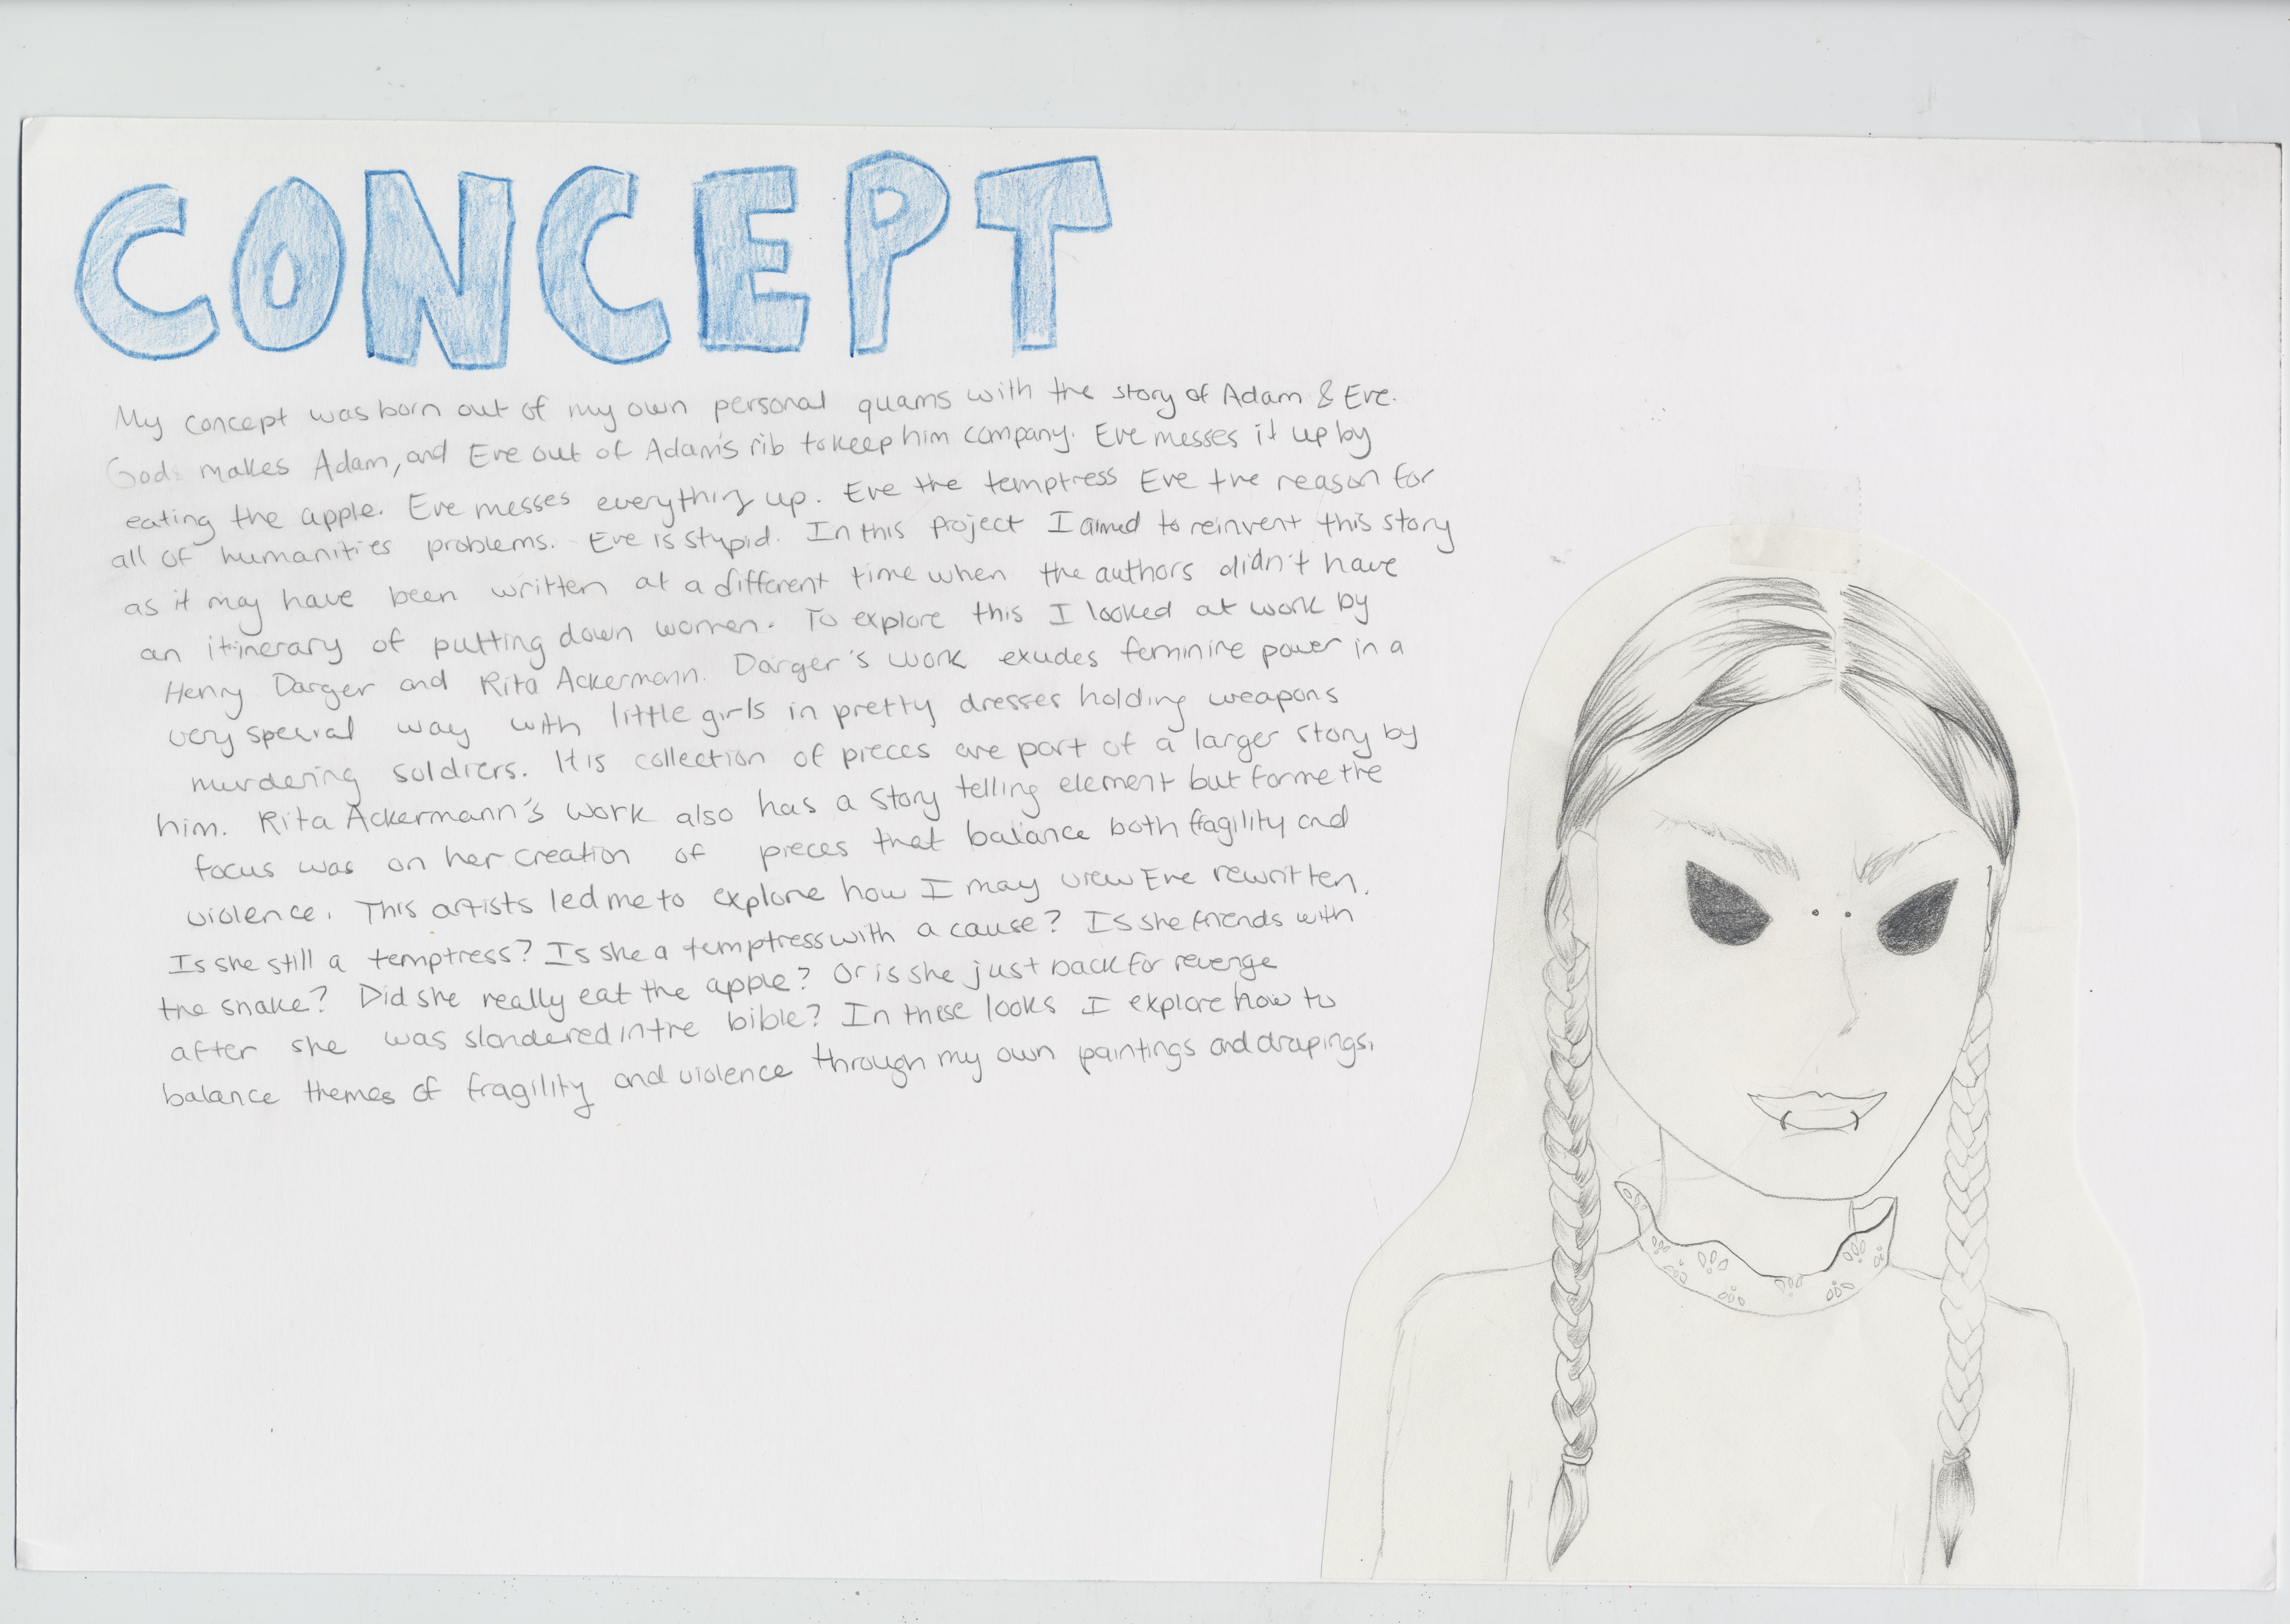 CONCEPT
My concept was born out of my own personal quams with the story of Adam & Eve.
God makes Adam, and Eve out of Adam's rib to keep him company. Eve messes it up by
eating the apple. Eve messes everything up. Eve the temptress Eve the reason for
all of humanities problems. Eve is stupid. In this project I aimed to reinvent this story
as it may have been written at a different time when the authors didn't have
an itinerary of putting down women. To explore this I looked at work by
Henry Darger and Rita Ackermann. Darger's work exudes feminine power in a
very special way with little girls in pretty dresses holding weapons
murdering soldiers. It is collection of pieces are part of a larger story by
him. Rita Ackermann's work also has a story telling element but for me the
focus was on her creation of pieces that balance both fragility and
violence. This artists led me to explore how I may view Eve rewritten.
Is she still a temptress? Is she a temptress with a cause? Is she friends with
the snake? Did she really eat the apple? Or is she just back for revenge
after she was slandered in the bible? In these looks I explore how to
balance themes of fragility and violence through my own paintings and drapings.